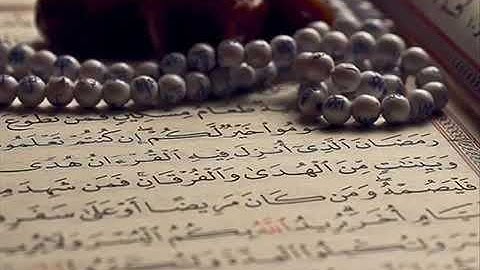 طَعَامُ مِسْكِينٍ فَمَن تَطَوَّعَ
خَيْرٌ لَّكُمْ إِن كُنتُمْ تَعْلَمُو
رَمَضَانَ الَّذِي أُنزِلَ فِيهِ الْقُرْءَانُ هُدًى
وَبَيِّنَتٍ مِّنَ الْهُدَى وَالْفُرْقَانِ فَمَن شَهِدَ
فَلْيَصُمْهُ وَمَن كَانَ مَرِيضًا أَوْ عَلَى سَفَرٍ
أُخَرَ يُرِيدُ اللَّهُ بِكُمُ الْيُسْرَ وَلَا يُرِيدُ